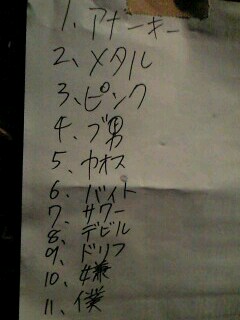 1、アナーキー
2、メタル
3、ピンク
4、ブ男
5、カオス
6、バイト
7、サワー
8、デビル
9、ドリフ
10、嫌
11、僕